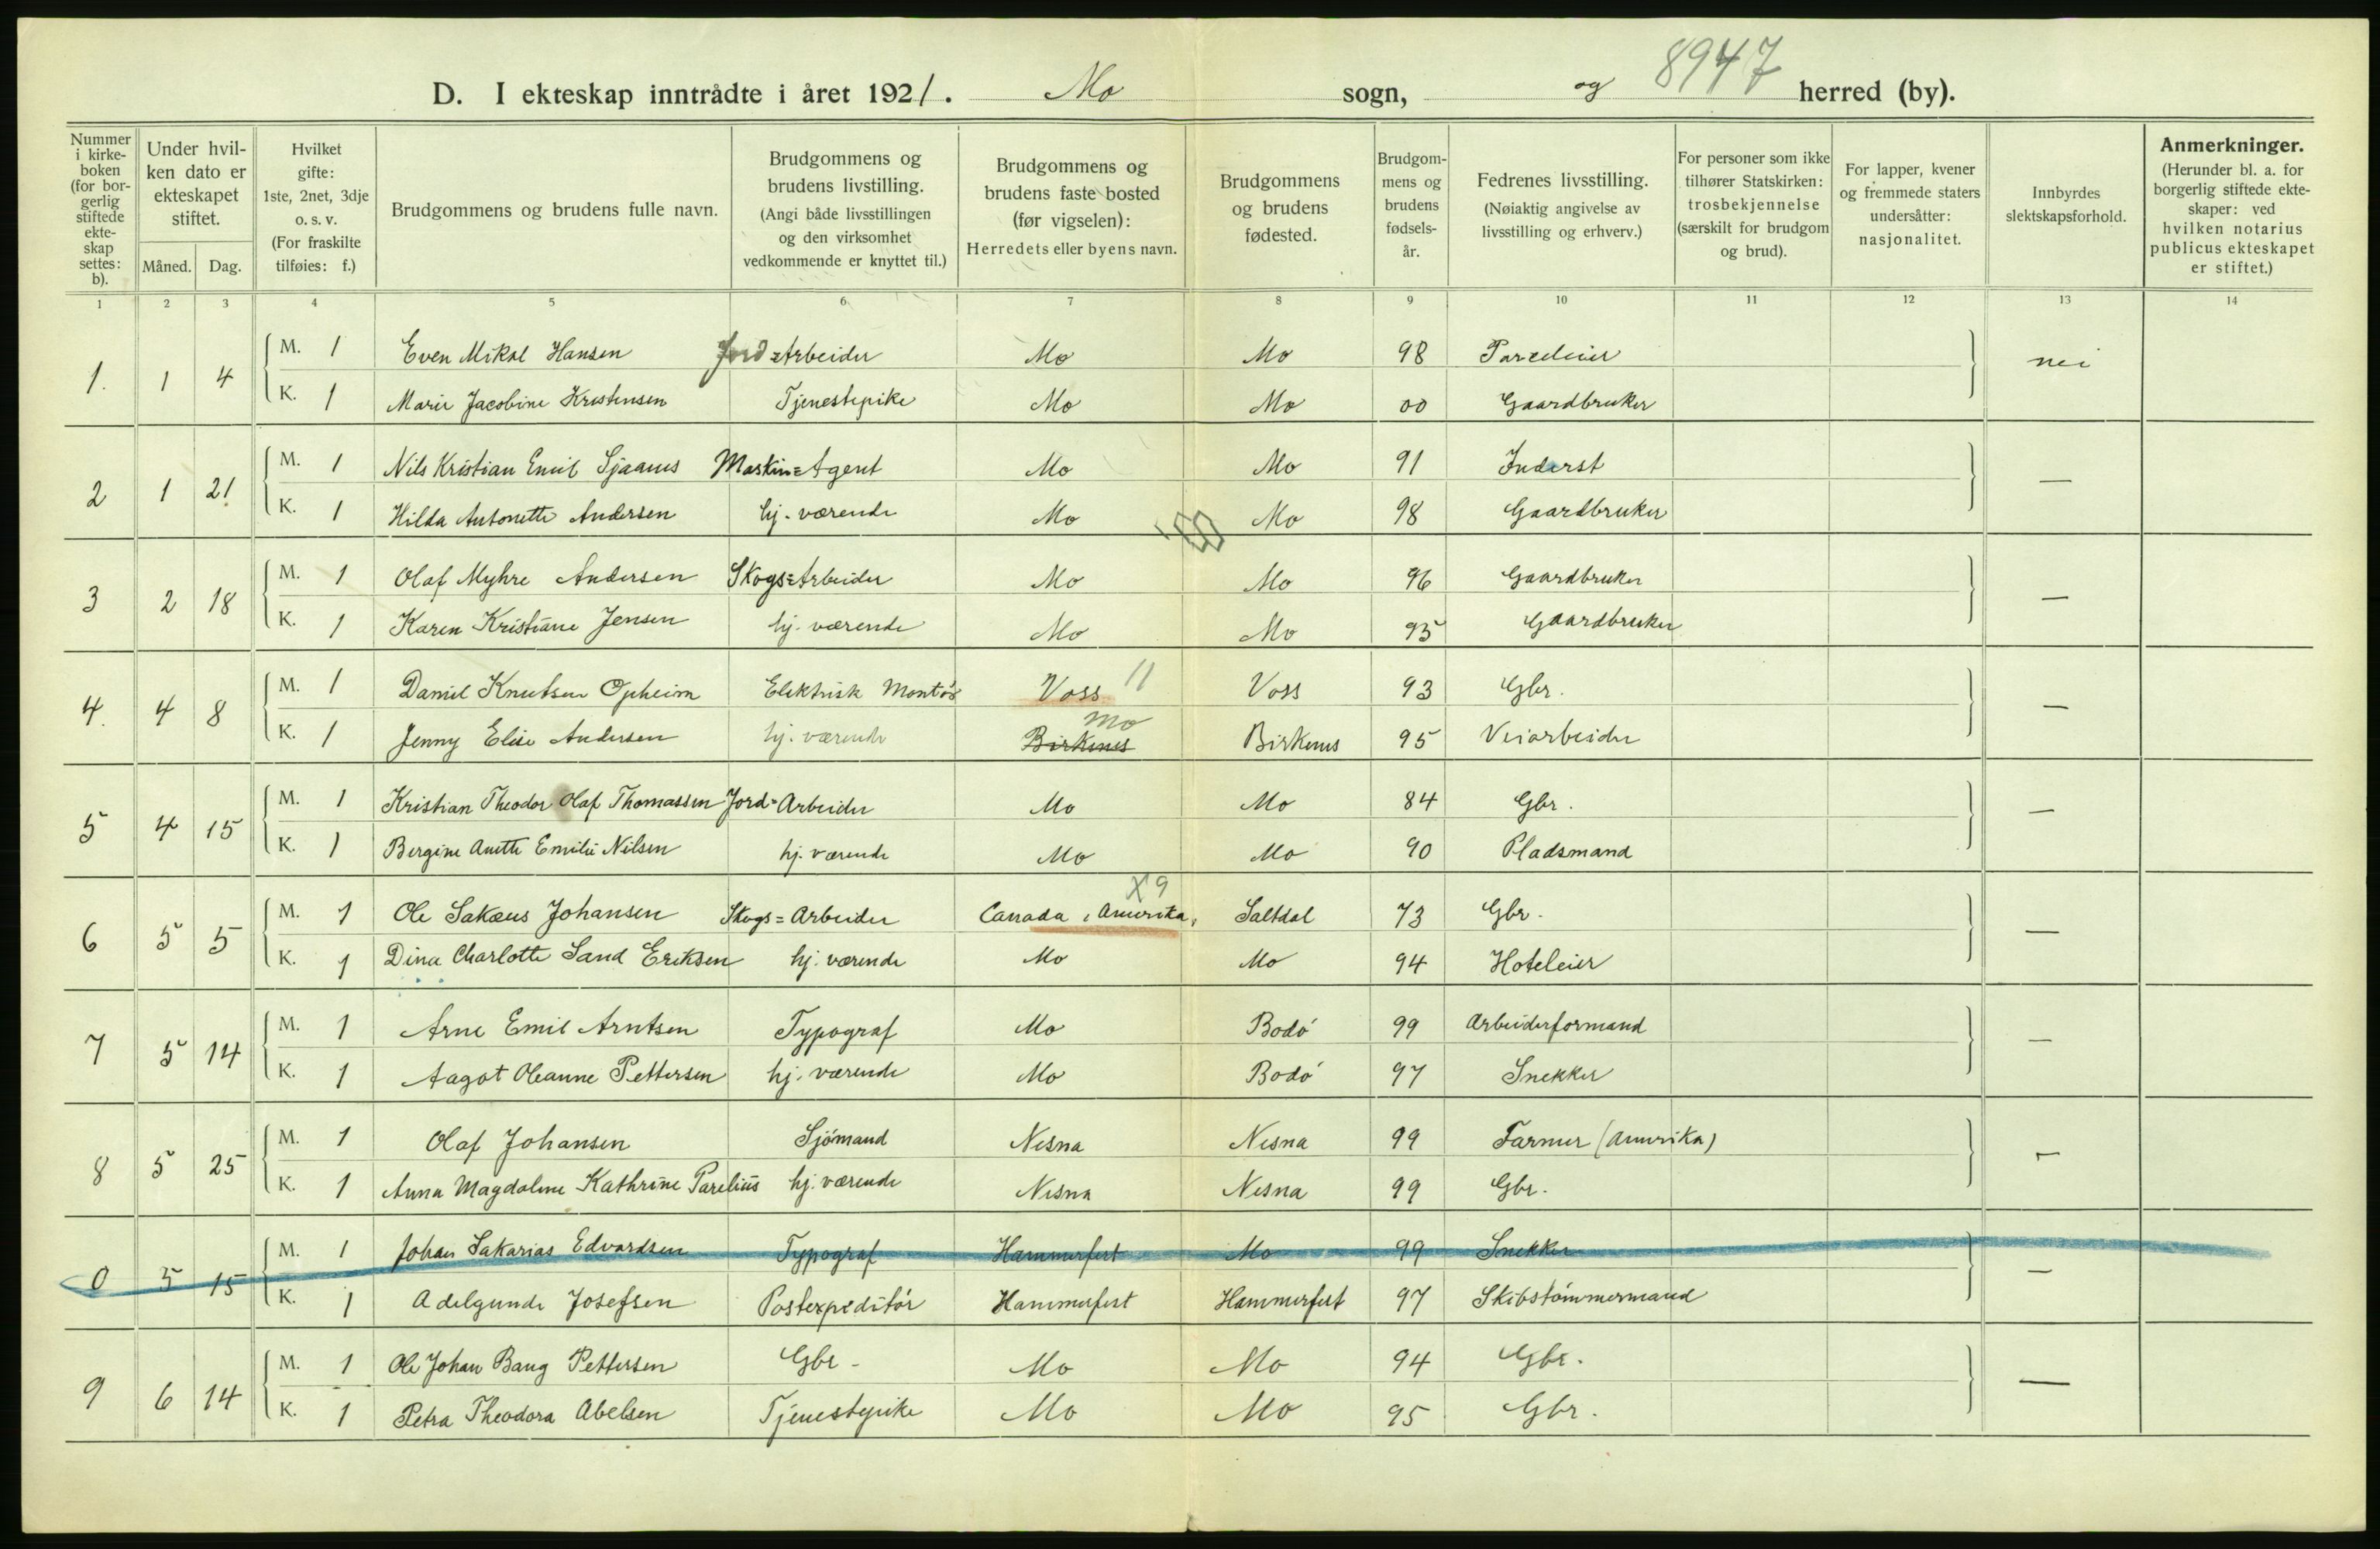 8947
D. I ekteskap inntrådte i året 1921. Mo sogn, og herred (by).
Nummer i kirke-boken (for bor-gerlig stiftede ekte-skap settes: b).
Under hvil-ken dato er ekteskapet stiftet.
Måned. Dag.
Hvilket gifte: 1ste, 2net, 3dje o. s. v. (For fraskilte tilføies: f.)
Brudgommens og brudens fulle navn.
Brudgommens og brudens livstilling. (Angi både livsstillingen og den virksomhet vedkommende er knyttet til.)
Brudgommens og brudens faste bosted (før vigselen): Herredets eller byens navn.
Brudgommens og brudens fødested.
Brudgom-mens og brudens fødsels-år.
Fedrenes livsstilling. (Nøiaktig angivelse av livsstilling og erhverv.)
For personer som ikke tilhører Statskirken: trosbekjennelse (særskilt for brudgom og brud).
For lapper, kvener og fremmede staters undersåtter: nasjonalitet.
Innbyrdes slektskapsforhold.
Anmerkninger. (Herunder bl. a. for borgerlig stiftede ekte-skaper: ved hvilken notarius publicus ekteskapet er stiftet.)
1 2 3 4 5 6 7 8 9 10 11 12 13 14
1. 1 4 M. 1 Even Mikal Hansen Jord=Arbeider Mo Mo 98 Parceleier nei
K. 1 Marie Jacobine Kristensen Tjenestepike Mo Mo 00 Gaardbruker
2 1 21 M. 1 Nils Kristian Emil Sjaanes Maskin=Agent Mo Mo 91 Inderst —
K. 1 Hilda Antonette Andersen hj. værende Mo Mo 98 Gaardbruker
3 2 18 M. 1 Olaf Myhre Andersen Skogs=Arbeider Mo Mo 96 Gaardbruker —
K. 1 Karen Kristiane Jensen hj. værende Mo Mo 95 Gaardbruker
4. 4 8 M. 1 Daniel Knutsen Opheim Elektrisk Montør Voss 11 Voss 93 Gbr. —
K. 1 Jenny Elise Andersen hj. værende Birkenes Mo Birkenes 95 Veiarbeider
5 4 15 M. 1 Kristian Theodor Olaf Thomassen Jord=Arbeider Mo Mo 84 Gbr. —
K. 1 Bergine Anette Emilie Nilsen hj. værende Mo Mo 90 Pladsmand
6 5 5 M. 1 Ole Sakæus Johansen Skogs=Arbeider Canada, Amerika, X9 Saltdal 73 Gbr. —
K. 1 Dina Charlotte Sand Eriksen hj. værende Mo Mo 94 Hoteleier
7 5 14 M. 1 Arne Emil Arntsen Typograf Mo Bodø 99 Arbeiderformand —
K. 1 Aagot Oleanne Pettersen hj. værende Mo Bodø 97 Snekker
8 5 25 M. 1 Olaf Johansen Sjømand Nesna Nesna 99 Farmer (Amerika) —
K. 1 Anna Magdalene Kathrine Parelius hj. værende Nesna Nesna 99 Gbr.
0 5 15 M. 1 Johan Sakarias Edvardsen Typograf Hammerfest Mo 99 Snekker —
K. 1 Adelgunde Josefsen Postexpeditør Hammerfest Hammerfest 97 Skibstømmermand
9 6 14 M. 1 Ole Johan Bang Pettersen Gbr. Mo Mo 94 Gbr. —
K. 1 Petra Theodora Abelsen Tjenestepike Mo Mo 95 Gbr.